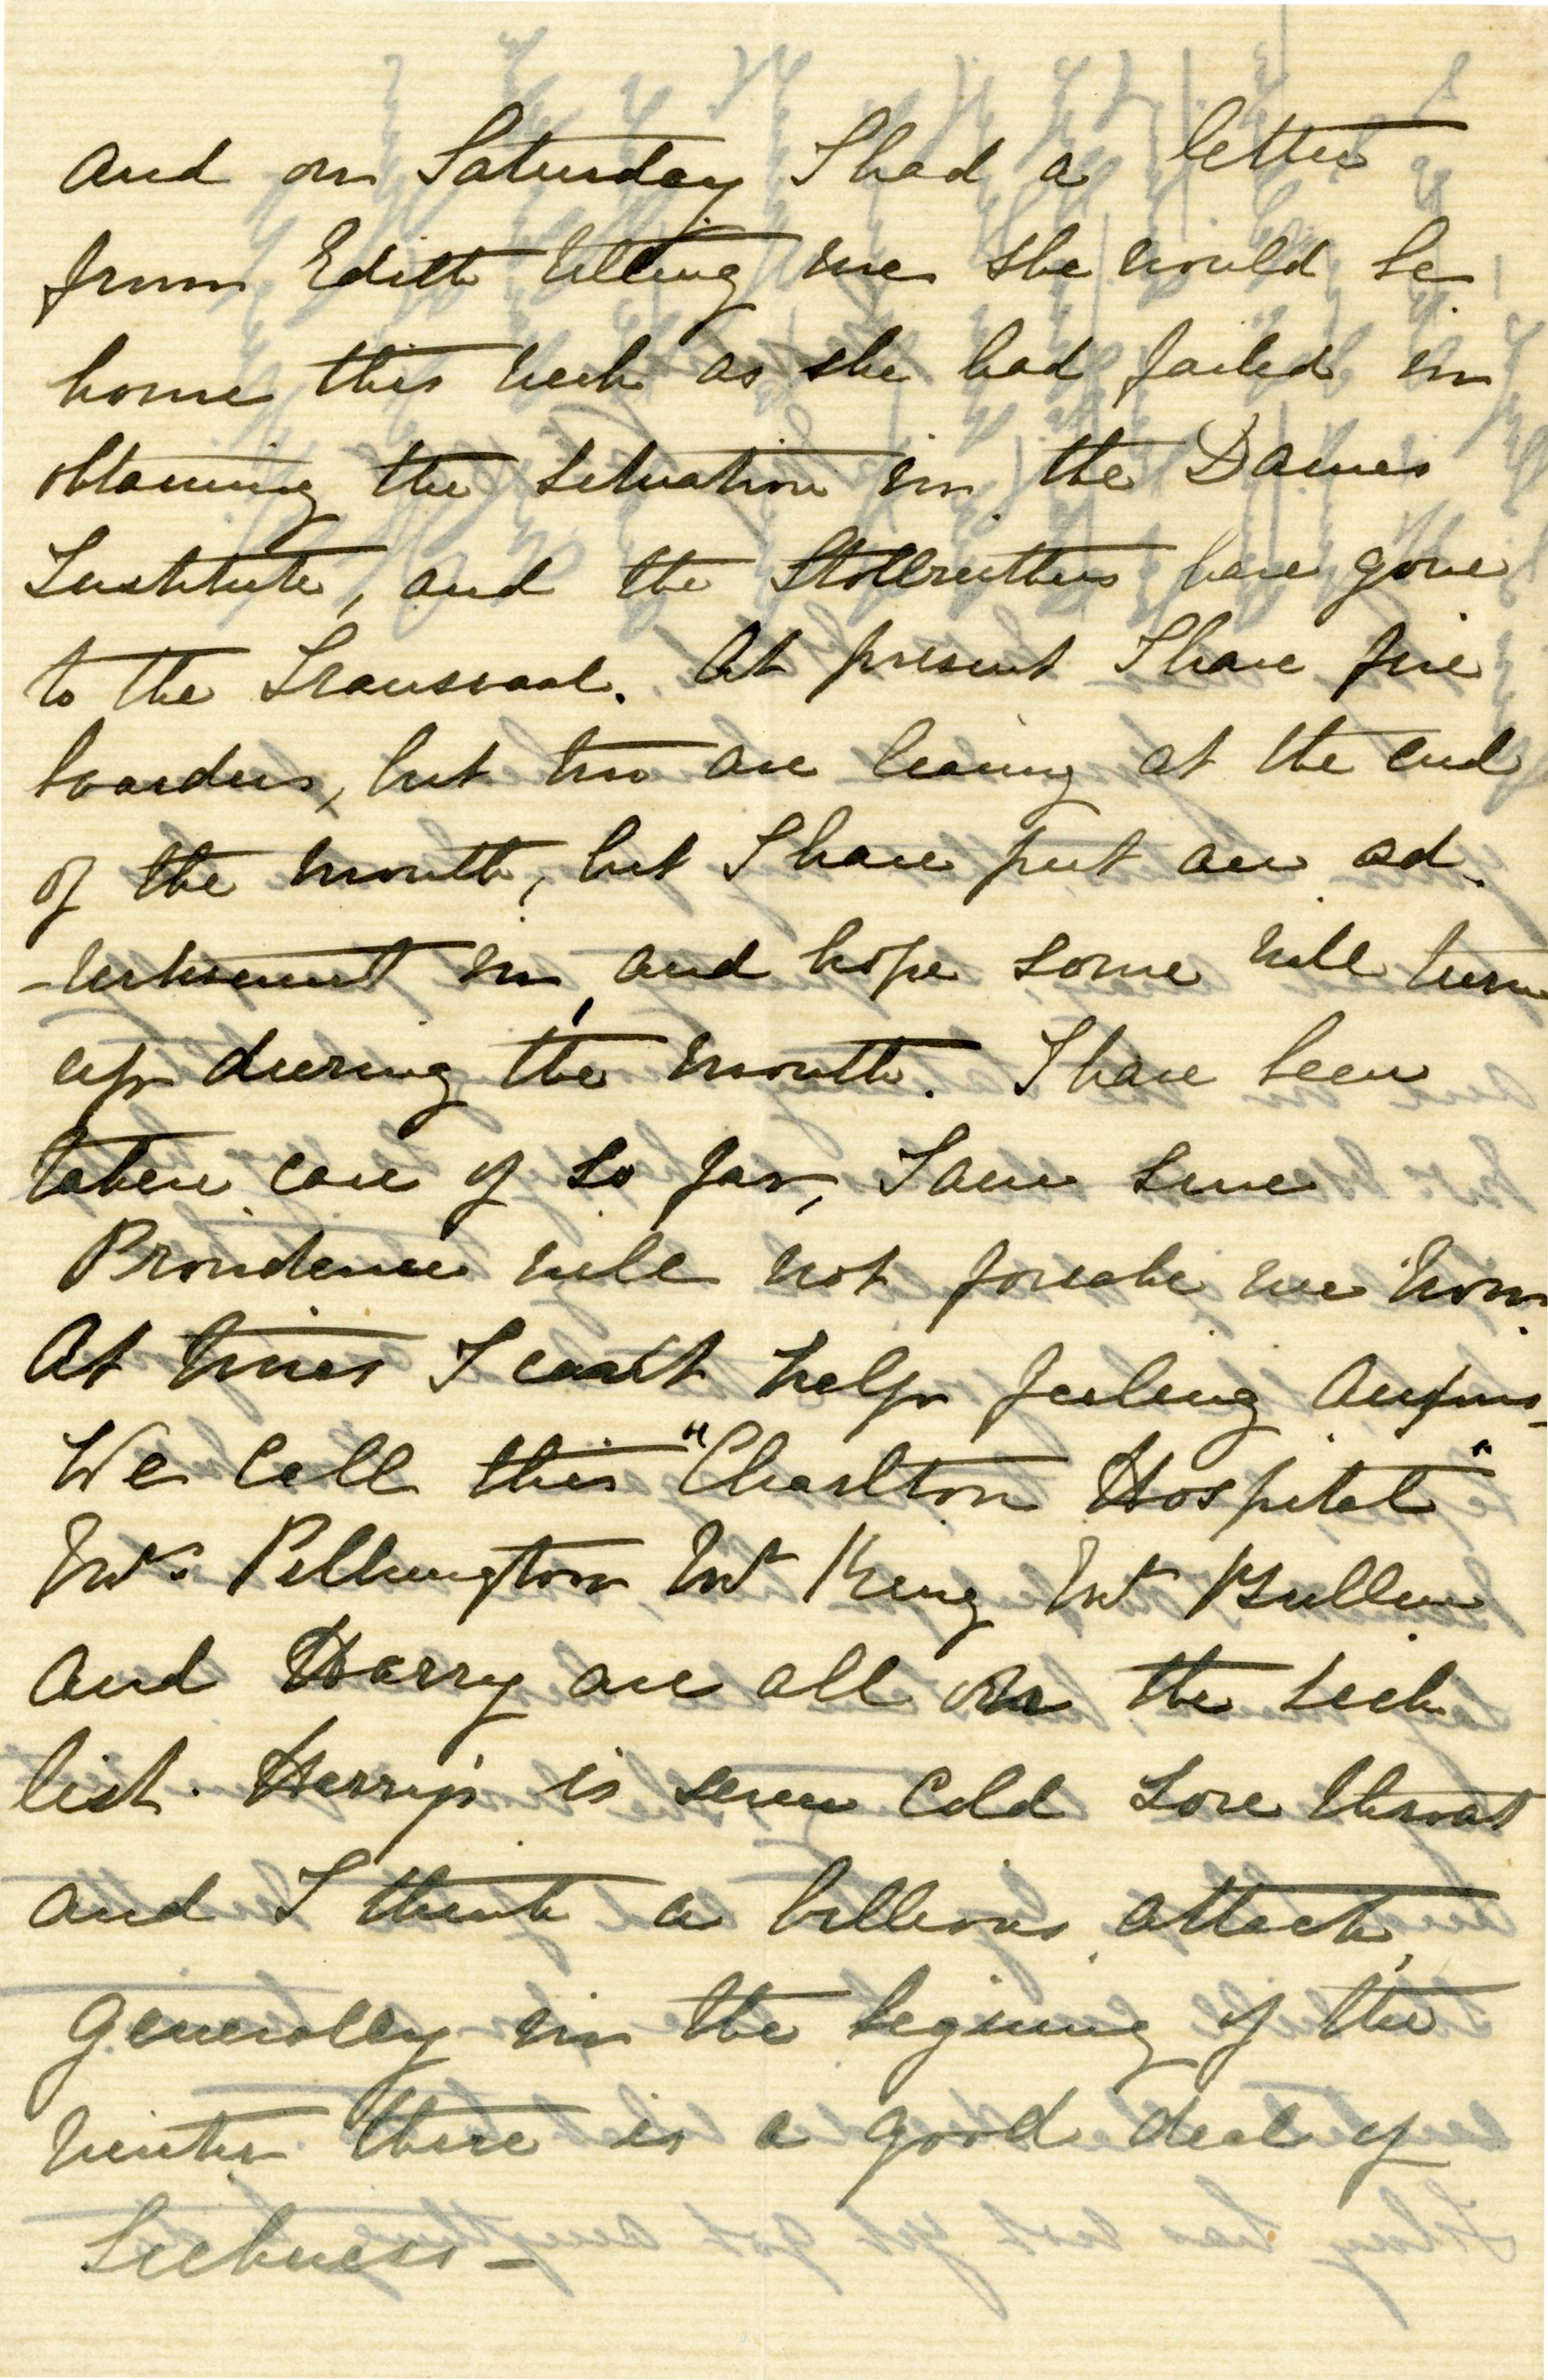 and on Saturday I had a letter
from Edith telling me she would be
home this week as she had failed in
obtaining the situation in the Dames
Institute, and the Stollreithers have gone
to the Transvaal. At present I have five
boarders, but two are leaving at the end
of the month, but I have put an ad-
-vertisement in, and hope some will turn
up during the month. I have been
taken care of so far, I am sure
Providence will not forsake me now.
At times I can't help feeling anxious-
We call this "Charlton Hospital"
Mrs. Pilkington Mr King Mr Bullen
and Harry are all on the sick
list. Harry's is severe cold sore throat
and I think a billious attack,
generally in the begining of the
winter there is a good deal of
Sickness-